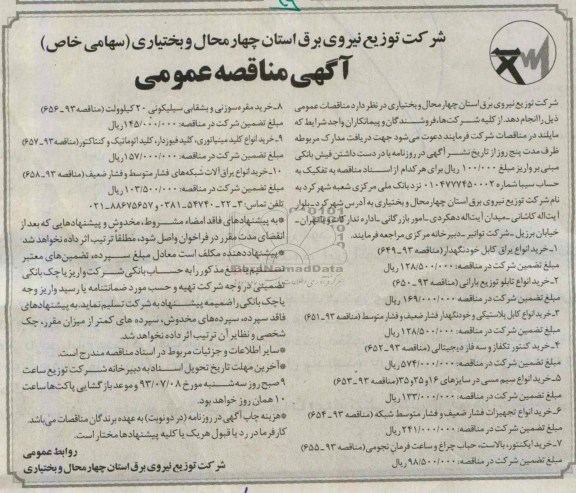 شرکت توزیع نیروی برق استان چهارمحال وبختیاری (سهامی خاص)
آگهی مناقصه عمومی
شرکت توزیع نیروی برق استان چهارمحال وبختیاری در نظر دارد مناقصات عمومی
ذیل را انجام دهد. از کلیه شرکت‌ها، فروشندگان و پیمانکاران واجد شرایط که
مایلند در مناقصات شرکت فرمایند دعوت می‌شود جهت دریافت مدارک مربوطه
ظرف مدت پنج روز از تاریخ نشر آگهی در روزنامه با در دست داشتن فیش بانکی
مبنی بر واریز مبلغ ۱۰۰/۰۰۰ ریال برای هر کدام از اسناد مناقصه به تفکیک به
حساب سیبا شماره ۰۱۰۴۷۷۷۴۵۰۰۰۲ نزد بانک ملی مرکزی شعبه شهرکرد به
نام شرکت توزیع نیروی برق استان چهارمحال و بختیاری به آدرس شهرکرد-بلوار
آیت‌اله کاشانی-میدان آیت‌اله دهکردی-امور بازرگانی-اداره تدارکات و یا تهران-
خیابان برزیل-شرکت توانیر-دبیرخانه مرکزی مراجعه فرمایند.
۱-خرید انواع یراق کابل خودنگهدار (مناقصه ۹۳-۶۴۹)
مبلغ تضمین شرکت در مناقصه: ۱۲۸/۵۰۰/۰۰۰ ریال
۲-خرید انواع تابلو توزیع بارانی (مناقصه ۹۳-۶۵۰)
مبلغ تضمین شرکت در مناقصه: ۱۶۹/۰۰۰/۰۰۰ ریال
۳-خرید انواع کابل پلاستیکی و خودنگهدار فشار ضعیف و فشار متوسط (مناقصه ۹۳-۶۵۱)
مبلغ تضمین شرکت در مناقصه: ۱۲۸/۵۰۰/۰۰۰ ریال
۴-خرید کنتور تکفاز و سه فاز دیجیتالی (مناقصه ۹۳-۶۵۲)
مبلغ تضمین شرکت در مناقصه: ۵۷۴/۰۰۰/۰۰۰ ریال
۵-خرید انواع سیم مسی در سایزهای ۱۶و۲۵و۳۵ (مناقصه ۹۳-۶۵۳)
مبلغ تضمین شرکت در مناقصه: ۱۳۳/۰۰۰/۰۰۰ ریال
۶-خرید انواع تجهیزات فشار ضعیف و فشار متوسط شبکه (مناقصه ۹۳-۶۵۴)
مبلغ تضمین شرکت در مناقصه: ۲۴۱/۰۰۰/۰۰۰ ریال
۷-خرید ایگنتور، بالاست، حباب چراغ و ساعت فرمان نجومی (مناقصه ۹۳-۶۵۵)
مبلغ تضمین شرکت در مناقصه: ۹۸/۵۰۰/۰۰۰ ریال
۸-خرید مقره سوزنی و بشقابی سیلیکونی ۲۰ کیلوولت (مناقصه ۹۳-۶۵۶)
مبلغ تضمین شرکت در مناقصه: ۱۴۵/۰۰۰/۰۰۰ ریال
۹-خرید انواع کلید مینیاتوری، کلید فیوزدار، کلید اتوماتیک و کنتاکتور (مناقصه ۹۳-۶۵۷)
مبلغ تضمین شرکت در مناقصه: ۱۵۷/۰۰۰/۰۰۰ ریال
۱۰-خرید انواع یراق آلات شبکه‌های فشار متوسط و فشار ضعیف (مناقصه ۹۳-۶۵۸)
مبلغ تضمین شرکت در مناقصه: ۱۰۳/۵۰۰/۰۰۰ ریال
تلفن تماس: ۳-۲۲۵۴۷۴۰-۰۳۸۱ و ۸۸۶۷۵۶۵۷-۰۲۱
*به پیشنهادهای فاقد امضاء مشروط، مخدوش و پیشنهادهایی که بعد از
انقضای مدت مقرر در فراخوان واصل شود، مطلقا ترتیب اثر داده نخواهد شد
*پیشنهاددهنده مکلف است معادل مبلغ سپرده، تضمین‌های معتبر
تسلیم یا مبلغ مذکور را به حساب بانکی شرکت واریز یا چک بانکی
تضمینی در وجه شرکت تهیه و حسب مورد ضمانتنامه یا رسید واریز وجه
یا چک بانکی را ضمیمه پیشنهاد به شرکت تسلیم نماید. به پیشنهادهای
فاقد سپرده، سپرده‌های مخدوش، سپرده های کمتر از میزان مقرر، چک
شخصی و نظایر آن ترتیب اثر داده نخواهد شد.
*سایر اطلاعات و جزئیات مربوط در اسناد مناقصه مندرج است.
*آخرین مهلت تاریخ تحویل اسناد به دبیرخانه شرکت توزیع ساعت
۹ صبح روز سه‌شنبه مورخ ۹۳/۰۷/۰۸ و موعد بازگشایی پاکت‌ها ساعت
۱۰ همان روز خواهد بود.
*هزینه چاپ آگهی در روزنامه (در دو نوبت) به عهده برندگان مناقصات می‌باشد
کارفرما در رد یا قبول هر یک یا کلیه پیشنهادها مختار است.
روابط عمومی
شرکت توزیع نیروی برق استان چهارمحال و بختیاری